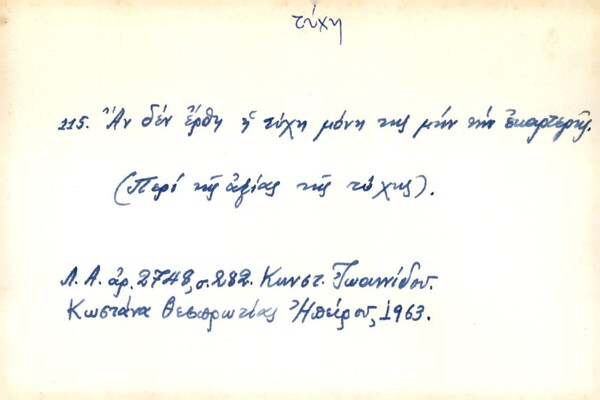 τύχη
115. Ἄν δέν ἔρθη ἡ τύχη μόνη της μήν τήν ἐκαρτερῆς.
(Περί τῆς ἀξίας τῆς τύχης).
Λ. Α. ἀρ. 2748, σ. 282. Κωνστ. Ἰωαννίδου.
Κωστάνα Θεσπρωτίας Ἠπείρου, 1963.